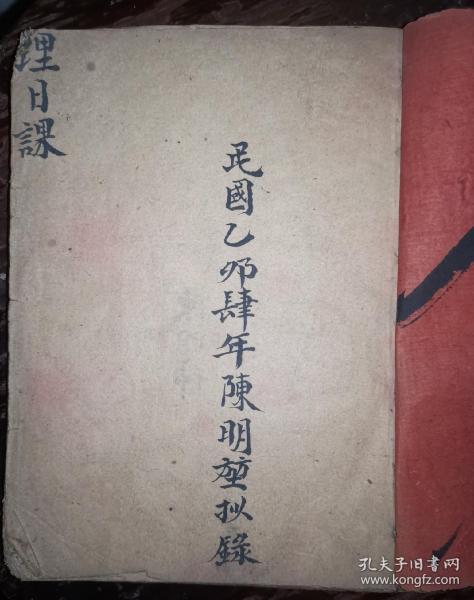 民國乙卯肆年陳明堃拟錄
理日課
孔夫子旧书网
www.kongfz.com